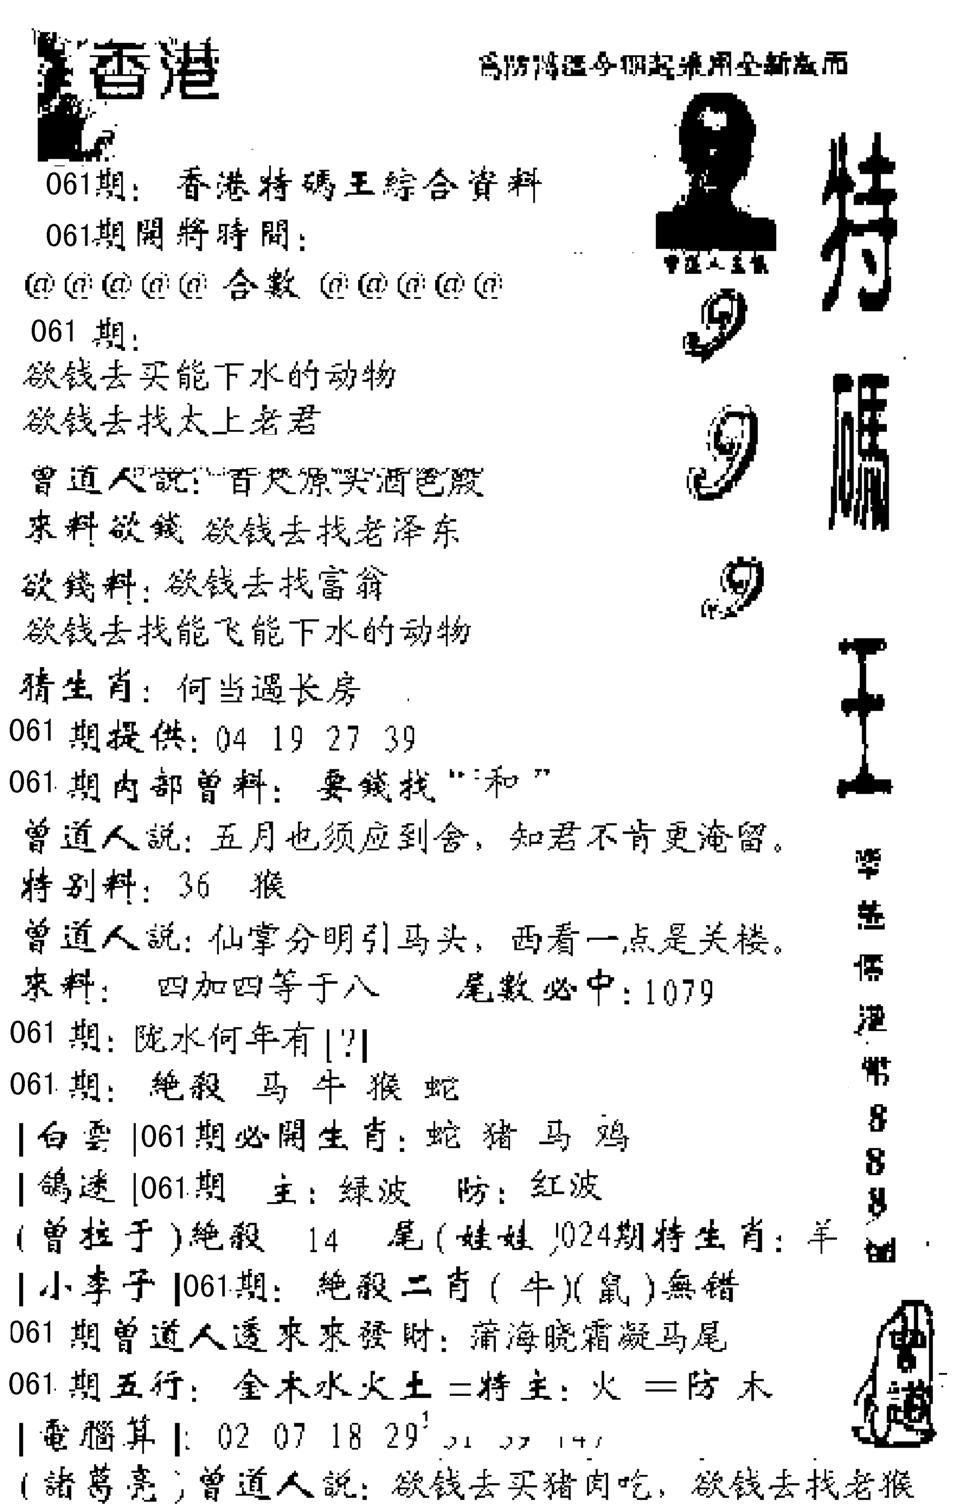 香港
為防混今期起采用全新版面
061期：香港特碼王綜合資料
061期開將時間：
@@@@@合數@@@@@
061期：
欲钱去买能下水的动物
欲钱去找太上老君
曾道人説：
來料欲錢 欲钱去找老泽东
欲錢料：欲钱去找富翁
欲钱去找能飞能下水的动物
猜生肖：何当遇长房
061期提供：04 19 27 39
061期内部曾料：要錢找“和”
曾道人説：五月也须应到舍，知君不肯更淹留。
特别料：36 猴
曾道人説：仙掌分明引马头，西看一点是关楼。
來料：四加四等于八 尾數必中：1079
061期：陇水何年有|?|
061期：絶殺 马 牛 猴 蛇
|白雲|061期必開生肖：蛇 猪 马 鸡
|鴿迷|061期 主：绿波 防：红波
(曾拉于)絶殺 14 尾(娃娃)024期特生肖：羊
|小李子|061期：絶殺二肖(牛)(鼠)無错
061期曾道人透來來發財：蒲海晓霜凝马尾
061期五行：金木水火土=特主：火=防木
|電腦算|：02 07 18 29
(諸葛亮)曾道人説：欲钱去买猪肉吃，欲钱去找老猴
999
特碼王
港幣888
曾道